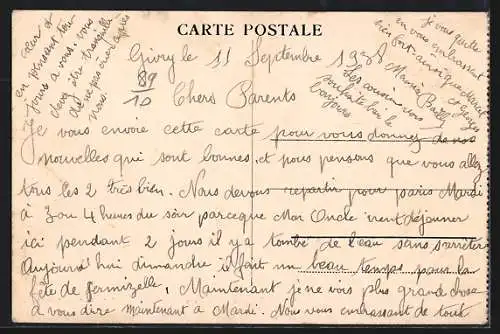 CARTE POSTALE
Givry le 11 Septembre 1938
89
10
Chers Parents
Je vous envoie cette carte pour vous donner de nos
nouvelles qui sont bonnes et nous pensons que vous allez
tous les 2 très bien. Nous devons repartir pour paris Mardi
à 3 ou 4 heures du soir parceque Mon Oncle vient déjeuner
ici pendant 2 jours il y a tombé de l'eau sans s'arrêter
Aujourd'hui dimanche il fait un beau temps pour la
fête de fermizelle. Maintenant je ne vois plus grand chose
à vous dire maintenant à Mardi. Nous vous embrassant de tout
cœur et
en pensant tou
te jours a vous. vous
devez être tranquille
de ne pas crier après
nous.
je vous quitte
en vous embrassant
bien fort ainsi que Marcel
et Georges
Mamie
Les cousin vous
souhaite bien le
bonjours